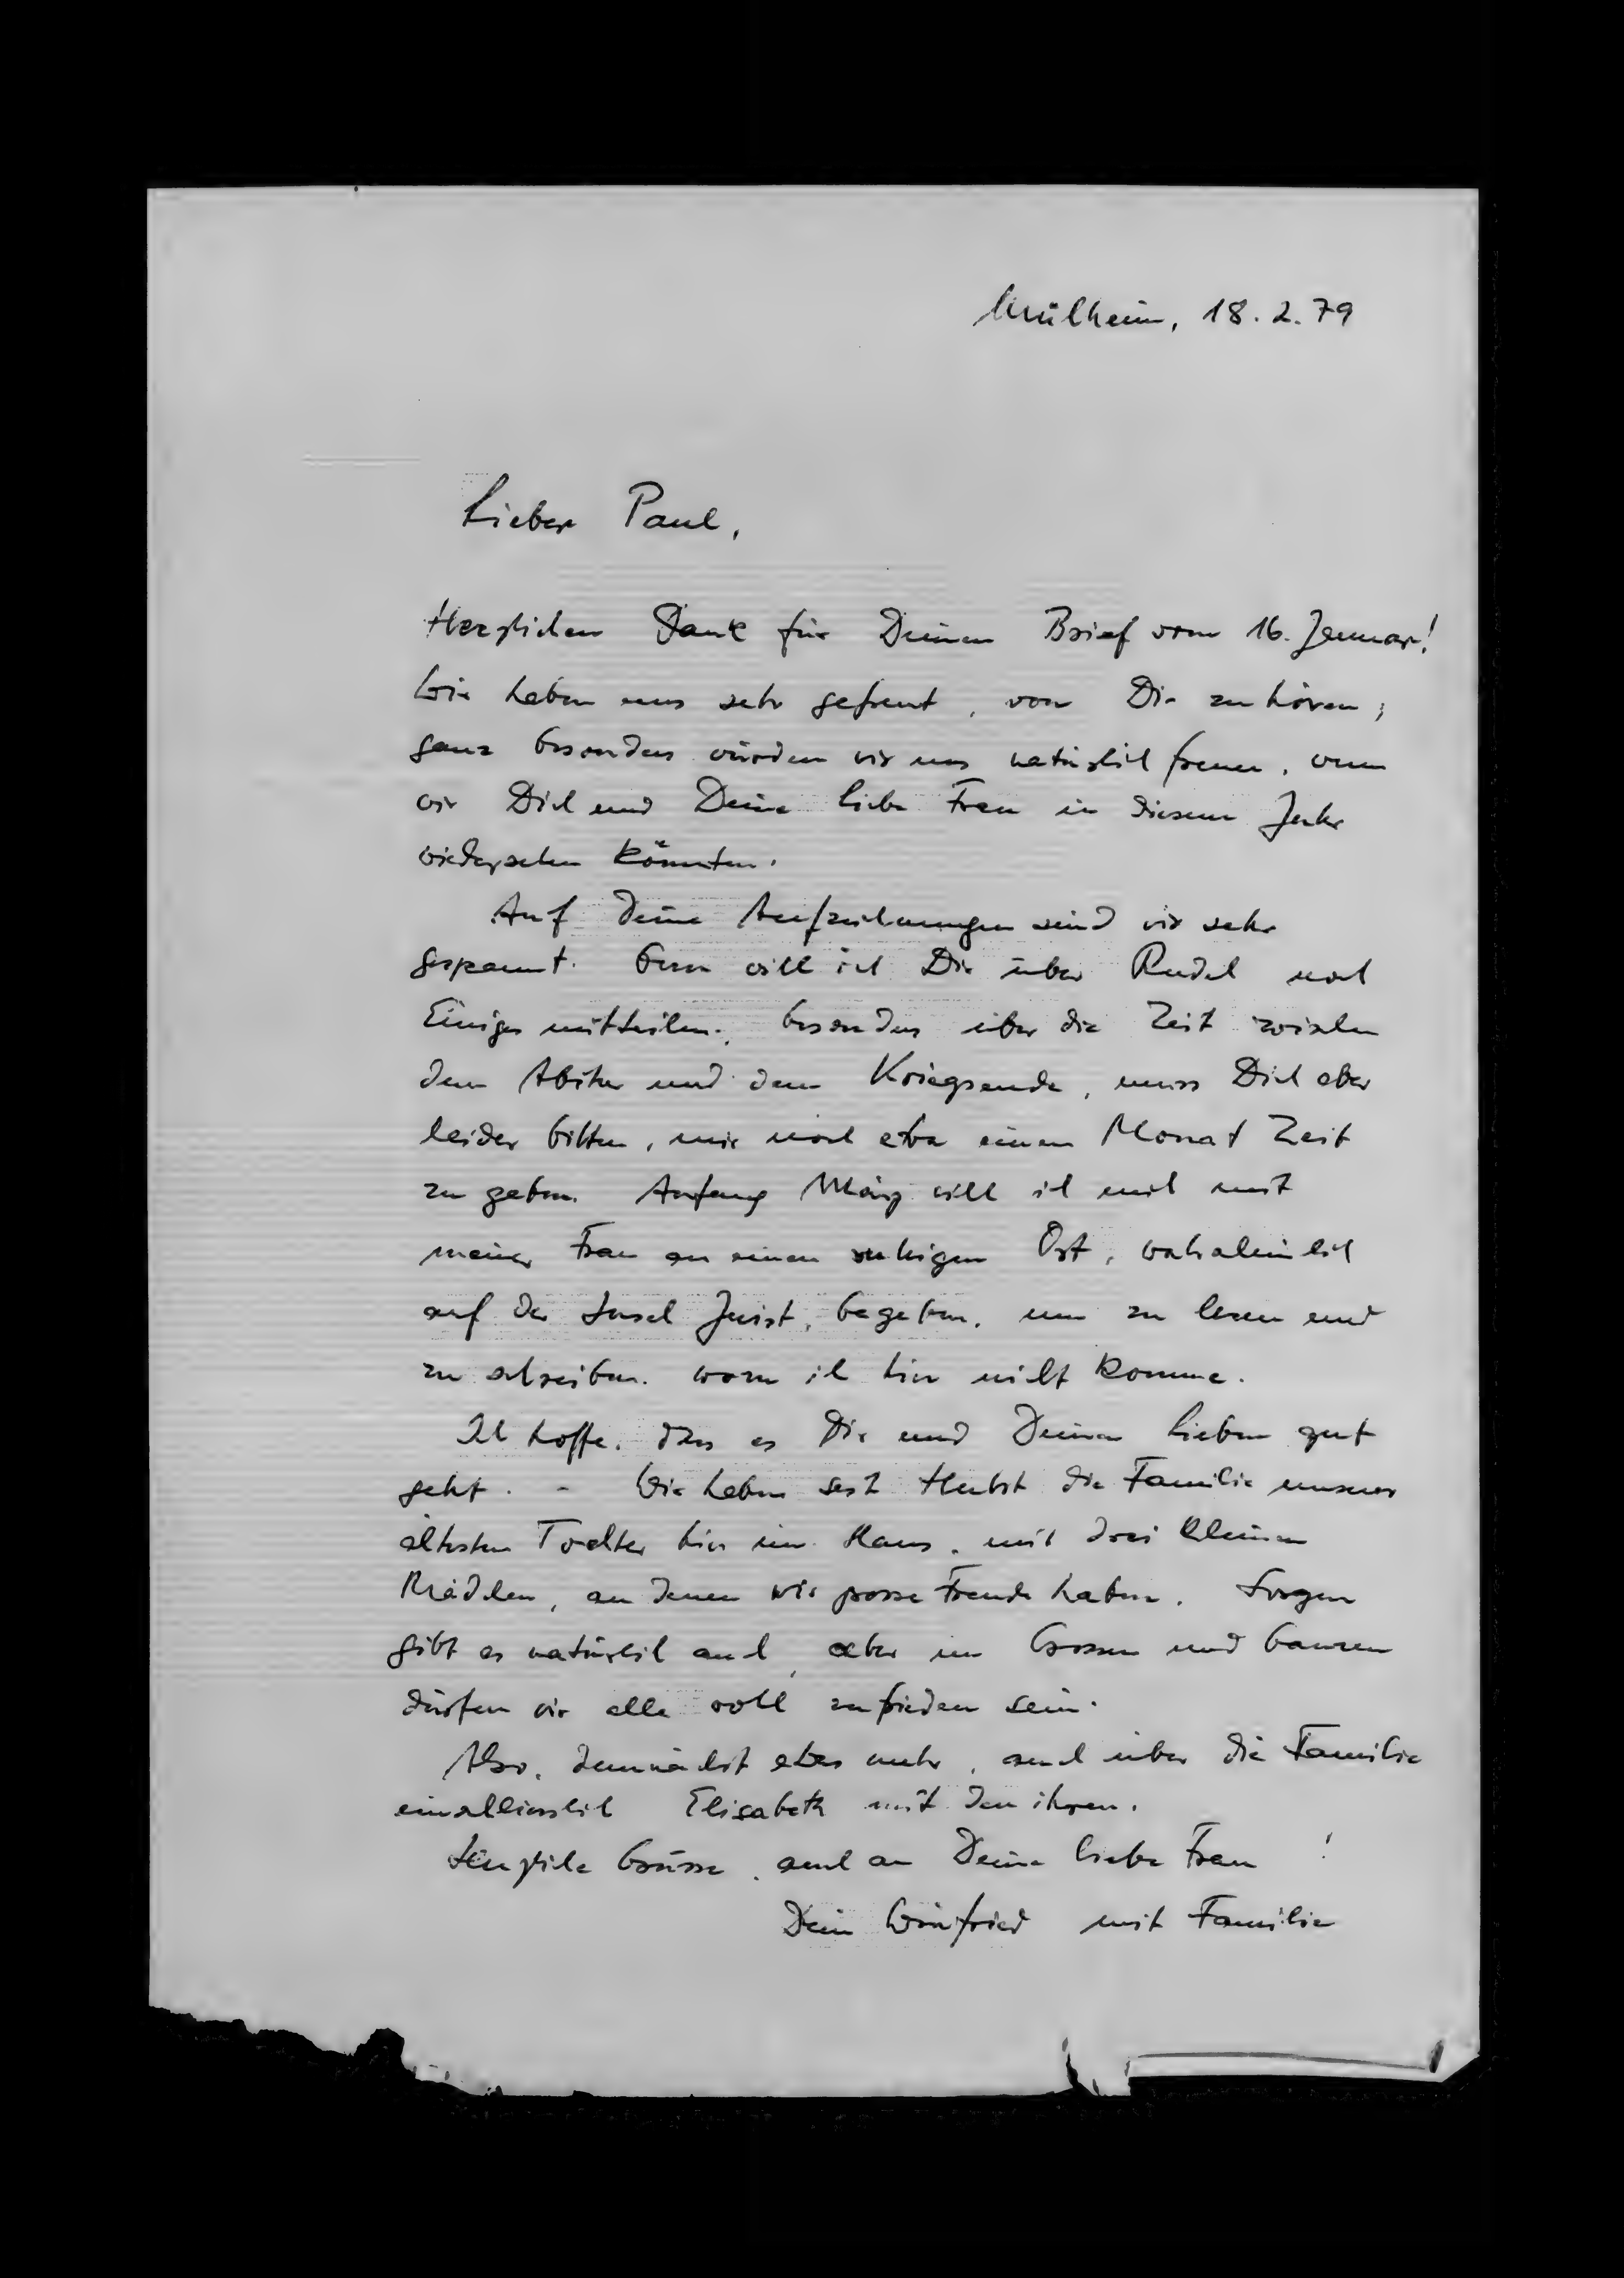 Mülheim, 18. 2. 79
Lieber Paul,
Herzlichen Dank für Deinen Brief vom 16. Januar!
Wir haben uns sehr gefreut, von Dir zu hören;
ganz besonders würden wir uns natürlich freuen, wenn
wir Dich und Deine liebe Frau in diesem Jahr
wiedersehen könnten.
Auf Deine Aufzeichnungen sind wir sehr
gespannt. Gern will ich Dir über Rudel noch
Einiges mitteilen, besonders über die Zeit zwischen
dem Abitur und dem Kriegsende, muss Dich aber
leider bitten, mir noch etwa einen Monat Zeit
zu geben. Anfang März will ich mich mit
meiner Frau an einen ruhigen Ort, wahrscheinlich
auf der Insel Juist, begeben, um zu lesen und
zu schreiben, wozu ich hier nicht komme.
Ich hoffe, dass es Dir und Deinen Lieben gut
geht. - Wir haben seit Herbst die Familie unserer
ältesten Tochter hier im Haus, mit drei kleinen
Mädchen, an denen wir grosse Freude haben. Sorgen
gibt es natürlich auch, aber im Grossen und Ganzen
dürfen wir alle wohl zufrieden sein.
Also, demnächst etwas mehr, auch über die Familie
einschliesslich Elisabeth mit den ihren.
Herzliche Grüsse, auch an Deine liebe Frau!
Dein Winfried mit Familie